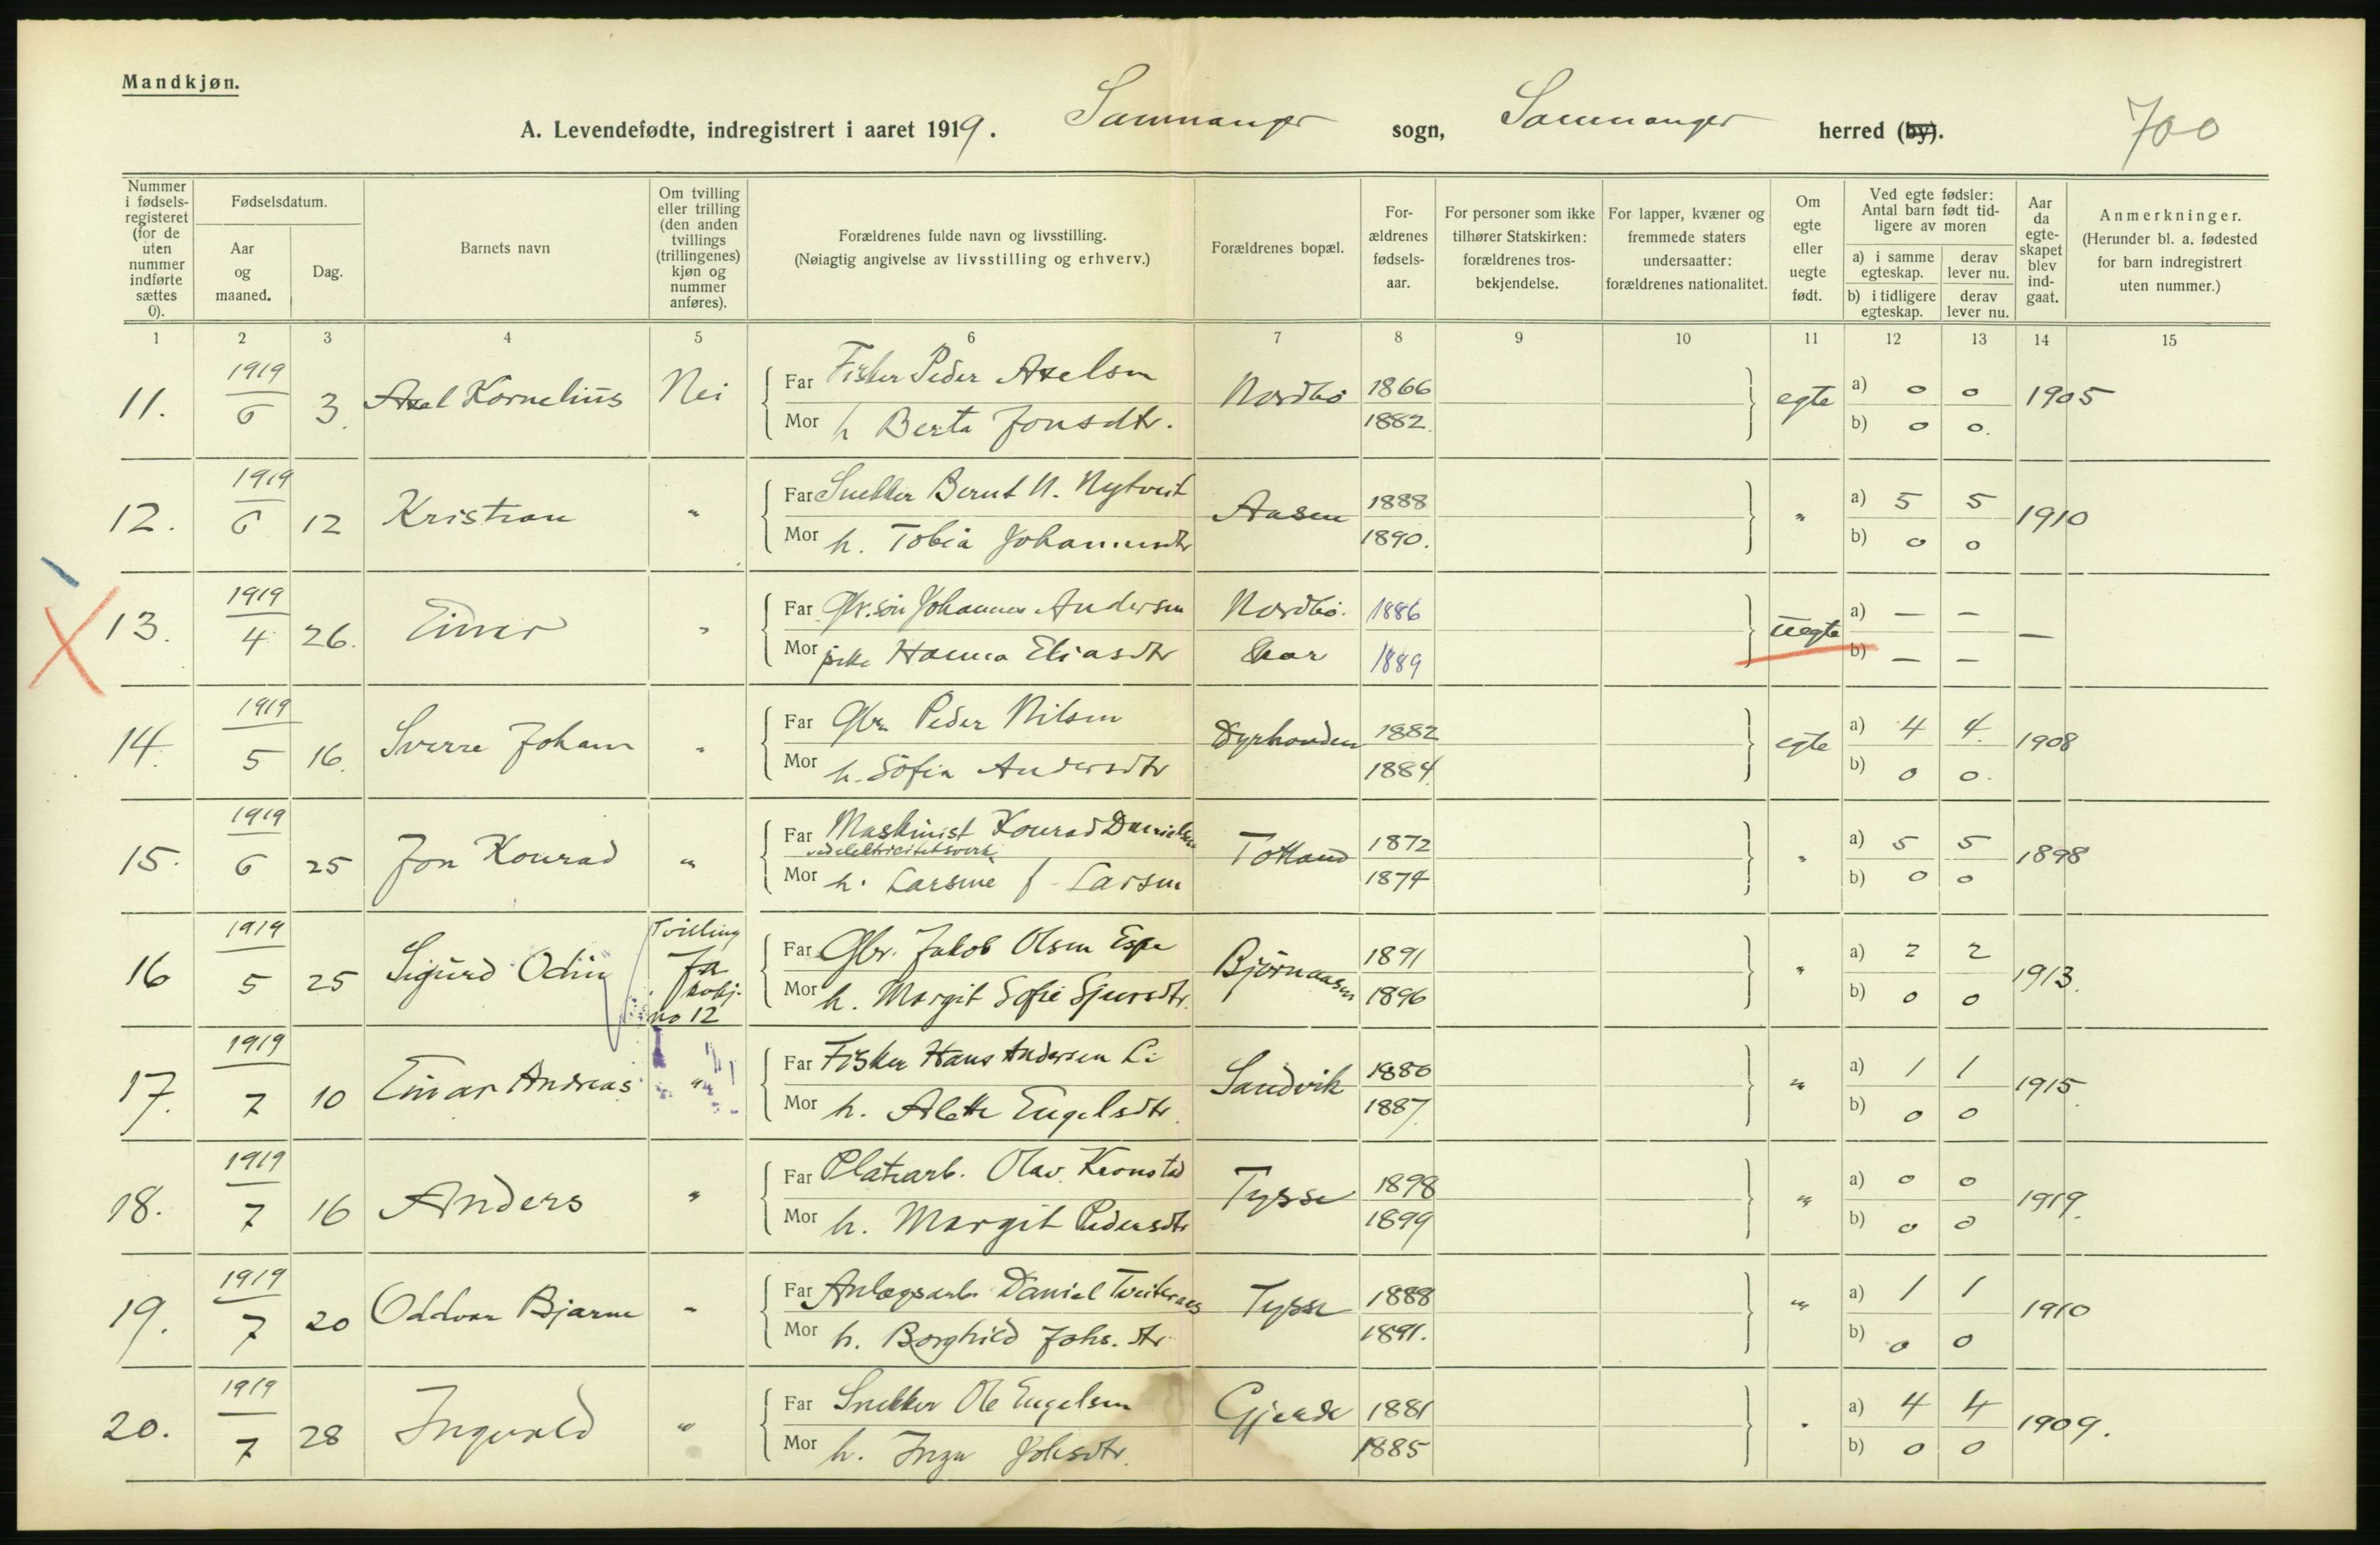 Mandkjøn.
A. Levendefødte, indregistrert i aaret 1919. Samnanger sogn, Samnanger herred (by). 700
Nummer i fødsels-registeret (for de uten nummer indførte sættes 0).
Fødselsdatum.
Aar og maaned.
Dag.
Barnets navn
Om tvilling eller trilling (den anden tvillings (trillingenes) kjøn og nummer anføres).
Forældrenes fulde navn og livsstilling.
(Nøiagtig angivelse av livsstilling og erhverv.)
Forældrenes bopæl.
For-ældrenes fødsels-aar.
For personer som ikke tilhører Statskirken: forældrenes tros-bekjendelse.
For lapper, kvæner og fremmede staters undersaatter: forældrenes nationalitet.
Om egte eller uegte født.
Ved egte fødsler: Antal barn født tid-ligere av moren
a) i samme egteskap.
derav lever nu.
b) i tidligere egteskap.
derav lever nu.
Aar da egte-skapet blev ind-gaat.
Anmerkninger.
(Herunder bl. a. fødested for barn indregistrert uten nummer.)
1 2 3 4 5 6 7 8 9 10 11 12 13 14 15
11. 1919 6 3. Axel Kornelius Nei Far Fisker Peder Axelsen Nordbø 1866 egte a) 0 0 1905
Mor h Berta Jonsdtr. 1882. b) 0 0.
12. 1919 6 12 Kristian " Far Snekker Bernt N. Nytveit Aasen 1888 " a) 5 5 1910
Mor h. Tobia Johannesdtr 1890. b) 0 0
13. 1919 4 26. Einar " Far Gbr. søn Johannes Andersen Nordbø. 1886 uegte a) — — —
Mor pike Hanna Eliasdtr 1889 b) — —
14. 1919 5 16. Sverre Johan " Far Gbr. Peder Nilsen Dyrhovden 1882 egte a) 4 4. 1908
Mor h. Sofia Andersdtr 1884. b) 0 0.
15. 1919 6 25 Jon Konrad " Far Maskinist Konrad Danielsen Totland 1872 " a) 5 5 1898
ved elektricitetsverk
Mor h. Larsine f. Larsen 1874 b) 0 0
16 1919 5 25 Sigurd Odin Tvilling Ja kvkj. no 12 Far Gbr. Jakob Olsen Espe Bjørnaasen 1891 " a) 2 2 1913.
Mor h. Margit Sofie Sjursdtr. 1896 b) 0 0
17. 1919 7 10 Einar Andreas " Far Fisker Hans Andersen Li Sandvik 1886 " a) 1 1 1915
Mor h. Alette Engelsdtr. 1887. b) 0 0
18. 1919 7 16 Anders " Far Platearb. Olav Kronstad Tysse 1898 " a) 0 0 1919.
Mor h. Margit Pedersdtr 1899 b) 0 0
19. 1919 7 20 Oddvar Bjarne " Far Anlægsarb. Daniel Tveiteraas Tysse 1888 " a) 1 1 1910
Mor h. Borghild Johs. dtr. 1891. b) 0 0
20. 1919 7 28 Ingvald " Far Snekker Ole Engelsen Gjerde 1881 " a) 4 4 1909.
Mor h. Inga Johsdtr. 1885 b) 0 0